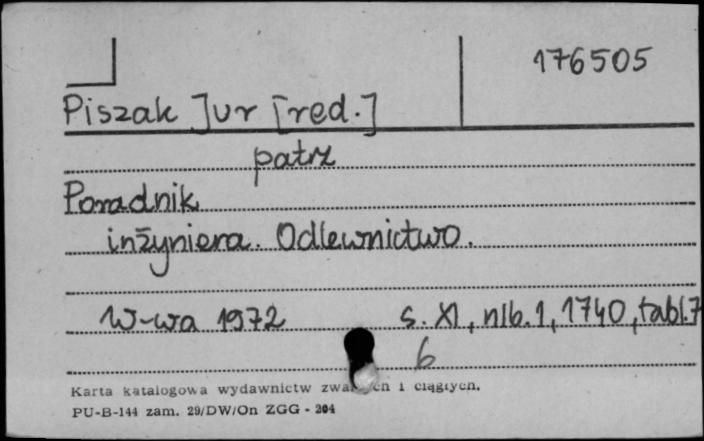 176505
Piszak Jur [red.]
patrz
Poradnik
inżyniera. Odlewnictwo.
W-wa 1972 s. XI, nlb. 1, 1740, tabl. 7
6
Karta katalogowa wydawnictw i ciągłych.
PU-B-144 zam. 29/DW/On ZGG - 204